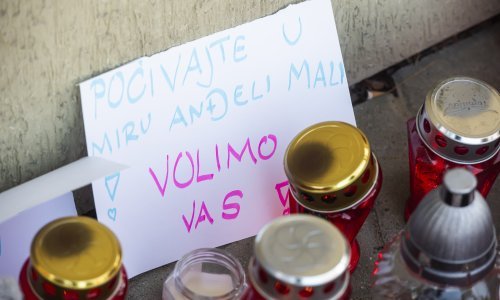 POČIVAJTE U
MIRU ANĐELI MALI
!
VOLIMO
VAS !